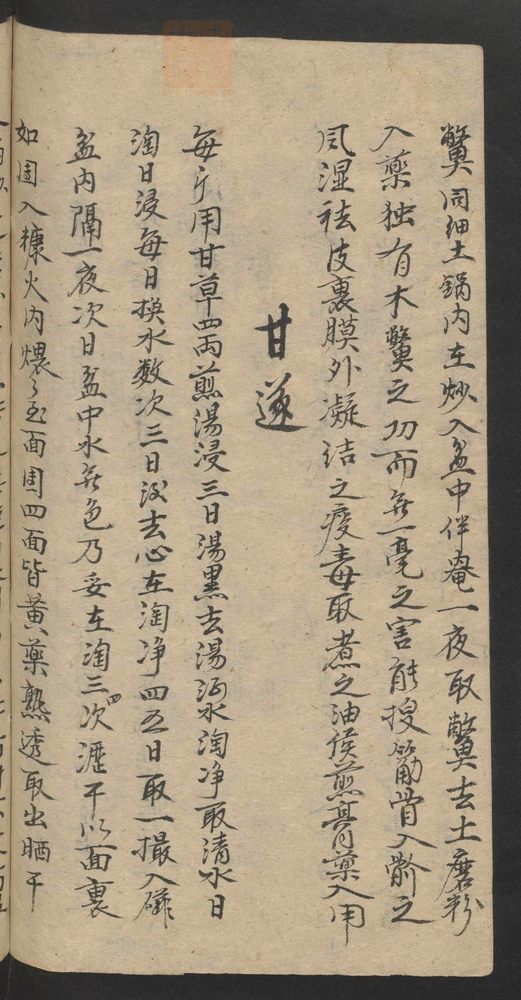 鱉同细土鍋內在炒入盆中伴奄一夜取鱉去土磨粉
入藥独有木鱉之功而無一毫之害能搜筋骨入骱之
風湿祛皮裏膜外凝结之痰毒取煮之油俟煎膏藥入用
甘遂
每斤用甘草四兩煎湯浸三日湯黑去湯河水淘净取清水日
淘日浸每日换水数次三日後去心在淘净四五日取一撮入磁
盆内隔一夜次日盆中水無色乃妥在淘三四次瀝干以面裏
如团入糠火内煨煨至面團四面皆黄藥熟透取出晒干